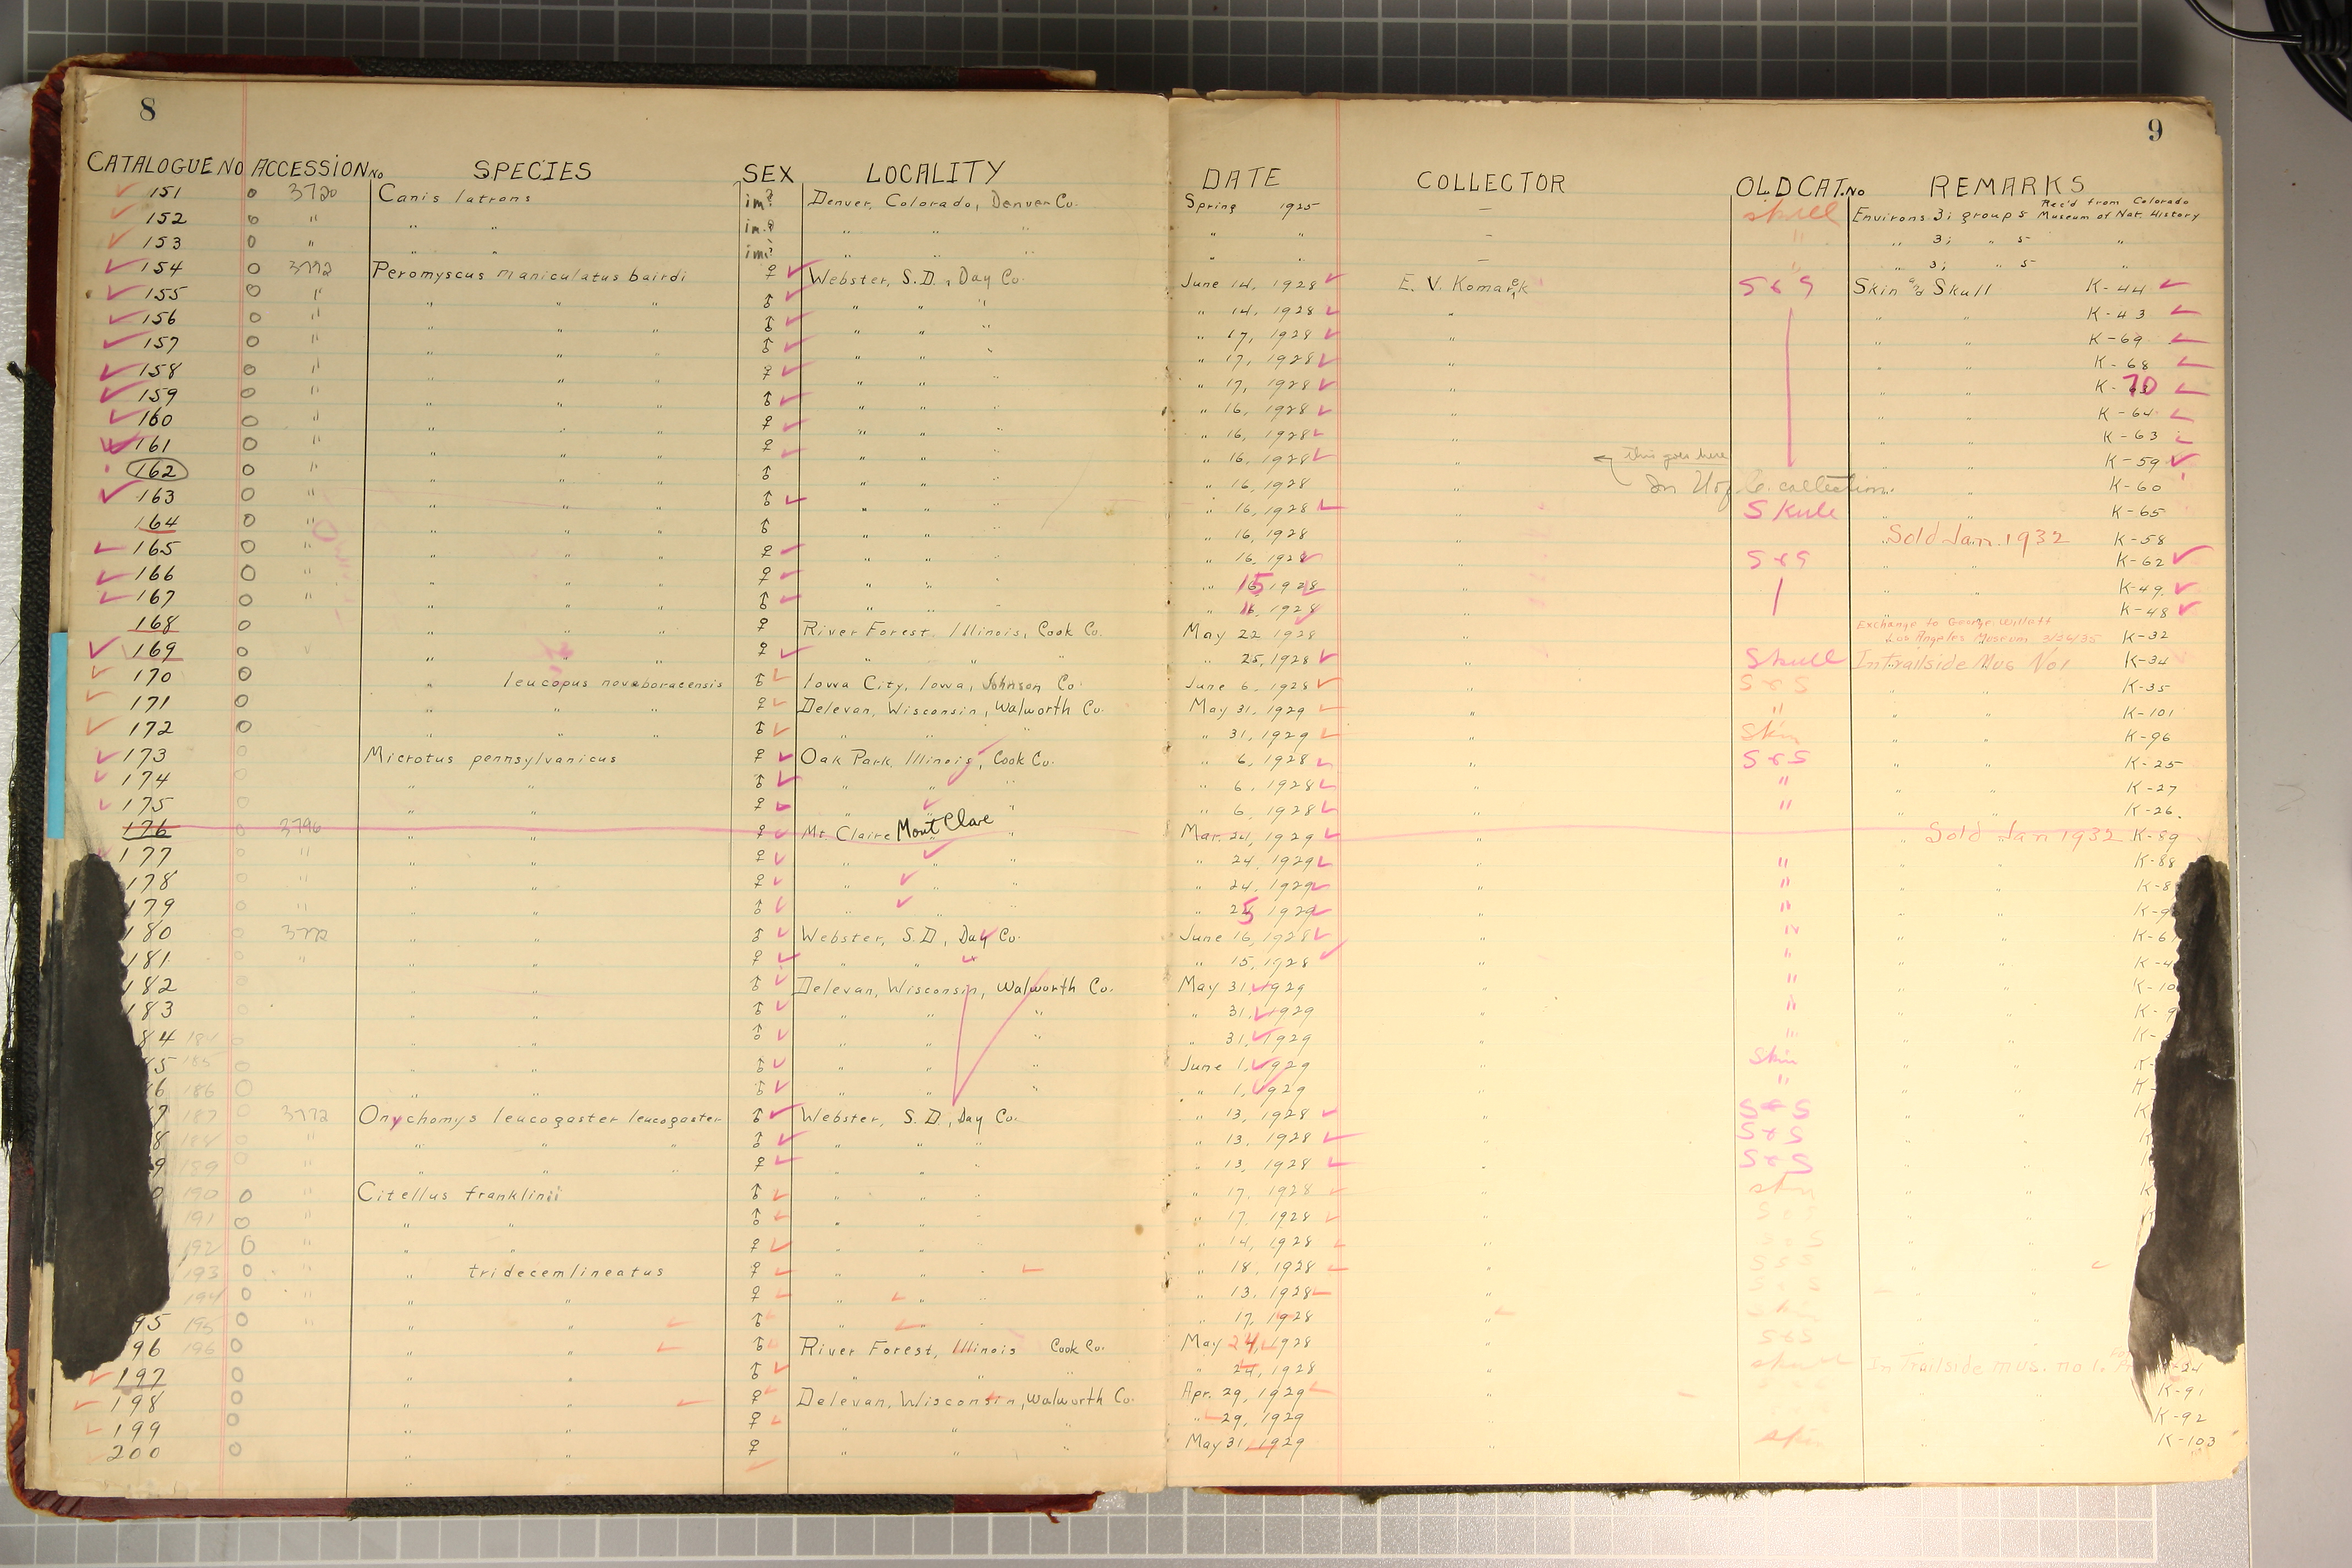 8
9
CATALOGUE NO ACCESSION No SPECIES SEX LOCALITY DATE COLLECTOR OLD CAT. No REMARKS
151 o 3720 Canis latrans im? Denver, Colorado, Denver Co. Spring 1925 — skull Environs. 3; group 5 Rec'd from Colorado Museum of Nat. History
152 o " " " im.? " " " " " — " " 3; " 5 "
153 o " " " im? " " " " " — " " 3; " 5 "
154 o 3772 Peromyscus maniculatus bairdi ♀ Webster, S.D., Day Co. June 14, 1928 E. V. Komarek S & S Skin and Skull K-44
155 o " " " " ♂ " " " " 14, 1928 " " " K-43
156 o " " " " ♂ " " " " 17, 1928 " " " K-69
157 o " " " " ♂ " " " " 17, 1928 " " " K-68
158 o " " " " ♀ " " " " 17, 1928 " " " K-70
159 o " " " " ♂ " " " " 16, 1928 " " " K-64
160 o " " " " ♀ " " " " 16, 1928 " " " K-63
161 o " " " " ♀ " " " " 16, 1928 " ← this goes here " " K-59
162 o " " " " ♂ " " " " 16, 1928 " In U of C. collection " K-60
163 o " " " " ♂ " " " " 16, 1928 " Skull " " K-65
164 o " " " " ♂ " " " " 16, 1928 " " Sold Jan. 1932 K-58
165 o " " " " ♀ " " " " 16, 1928 " S & S " " K-62
166 o " " " " ♀ " " " " 15 1928 " " " K-49
167 o " " " " ♂ " " " " 1928 " " " K-48
168 o " " " ♀ River Forest, Illinois, Cook Co. May 22 1928 " Exchange to George Willett Los Angeles Museum 3/26/35 K-32
169 o " " " ♀ " " " " 25, 1928 " Skull In trailside Mus No1 K-34
170 o " leucopus noveboracensis ♂ Iowa City, Iowa, Johnson Co. June 6, 1928 " S & S " " K-35
171 o " " " ♀ Delevan, Wisconsin, Walworth Co. May 31, 1929 " " " " K-101
172 o " " " ♂ " " " " 31, 1929 " Skin " " K-96
173 o Microtus pennsylvanicus ♀ Oak Park, Illinois, Cook Co. " 6, 1928 " S & S " " K-25
174 o " " ♂ " " " " 6, 1928 " " " " K-27
175 o " " ♀ " " " " 6, 1928 " " " " K-26.
176 o 3796 " " ♀ Mt. Claire Mont Clare " " Mar. 24, 1929 " " Sold Jan 1932 K-89
177 o " " " ♀ " " " " 24, 1929 " " " " K-88
178 o " " " ♀ " " " " 24, 1929 " " " " K-8
179 o " " " ♂ " " " " 25 1929 " " " " K-9
180 o 3772 " " ♂ Webster, S.D., Day Co. June 16, 1928 " " " " K-6
181 o " " " ♀ " " " 15, 1928 " " " " K-4
182 o " " ♂ Delevan, Wisconsin, Walworth Co. May 31, 1929 " " " " K-10
183 o " " ♂ " " " " 31, 1929 " " " " K-9
84 184 o " " ♂ " " " " 31, 1929 " " " " K-
5 185 o " " ♂ " " " June 1, 1929 " Skin " " K-
6 186 o " " ♂ " " " " 1, 1929 " " " " K-
7 187 o 3772 Onychomys leucogaster leucogaster ♂ Webster, S.D., Day Co. " 13, 1928 " S & S " " K
8 188 o " " " " ♂ " " " " 13, 1928 " S & S " "
9 189 o " " " " ♀ " " " " 13, 1928 " S & S " "
190 o " Citellus franklinii ♂ " " " " 17, 1928 " skin " " K
191 o " " " ♂ " " " " 17, 1928 " S & S " "
192 o " " " ♀ " " " " 14, 1928 " S & S " "
193 o " " tridecemlineatus ♀ " " " " 18, 1928 " S & S " "
194 o " " " ♀ " " " " 13, 1928 " S & S " "
95 195 o " " " ♂ " " " " 17, 1928 " skin " "
96 196 o " " ♂ River Forest, Illinois Cook Co. May 24, 1928 " S & S " "
197 o " " ♂ " " " " 24, 1928 " skull In trailside mus. no 1. -24
198 o " " ♀ Delevan, Wisconsin, Walworth Co. Apr. 29, 1929 " " " K-91
199 o " " ♀ " " " " 29, 1929 " " " K-92
200 o " " ♀ " " " May 31, 1929 " skin " " K-103